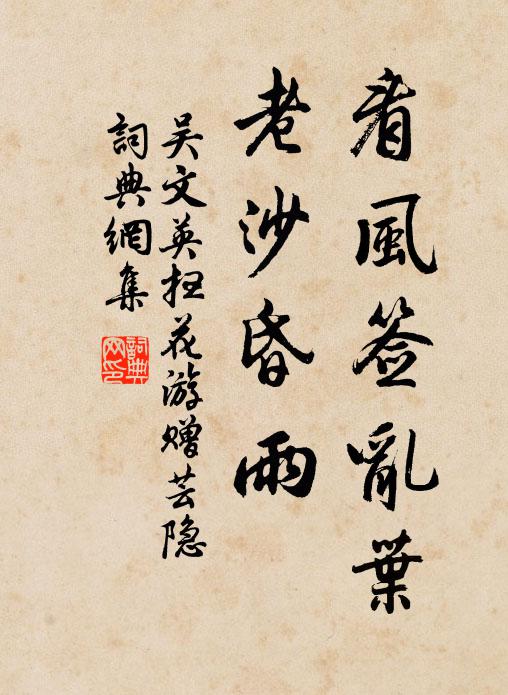 看風签亂葉
老沙昏雨
吴文英扫花游赠芸隐
詞典網集
詞典网印